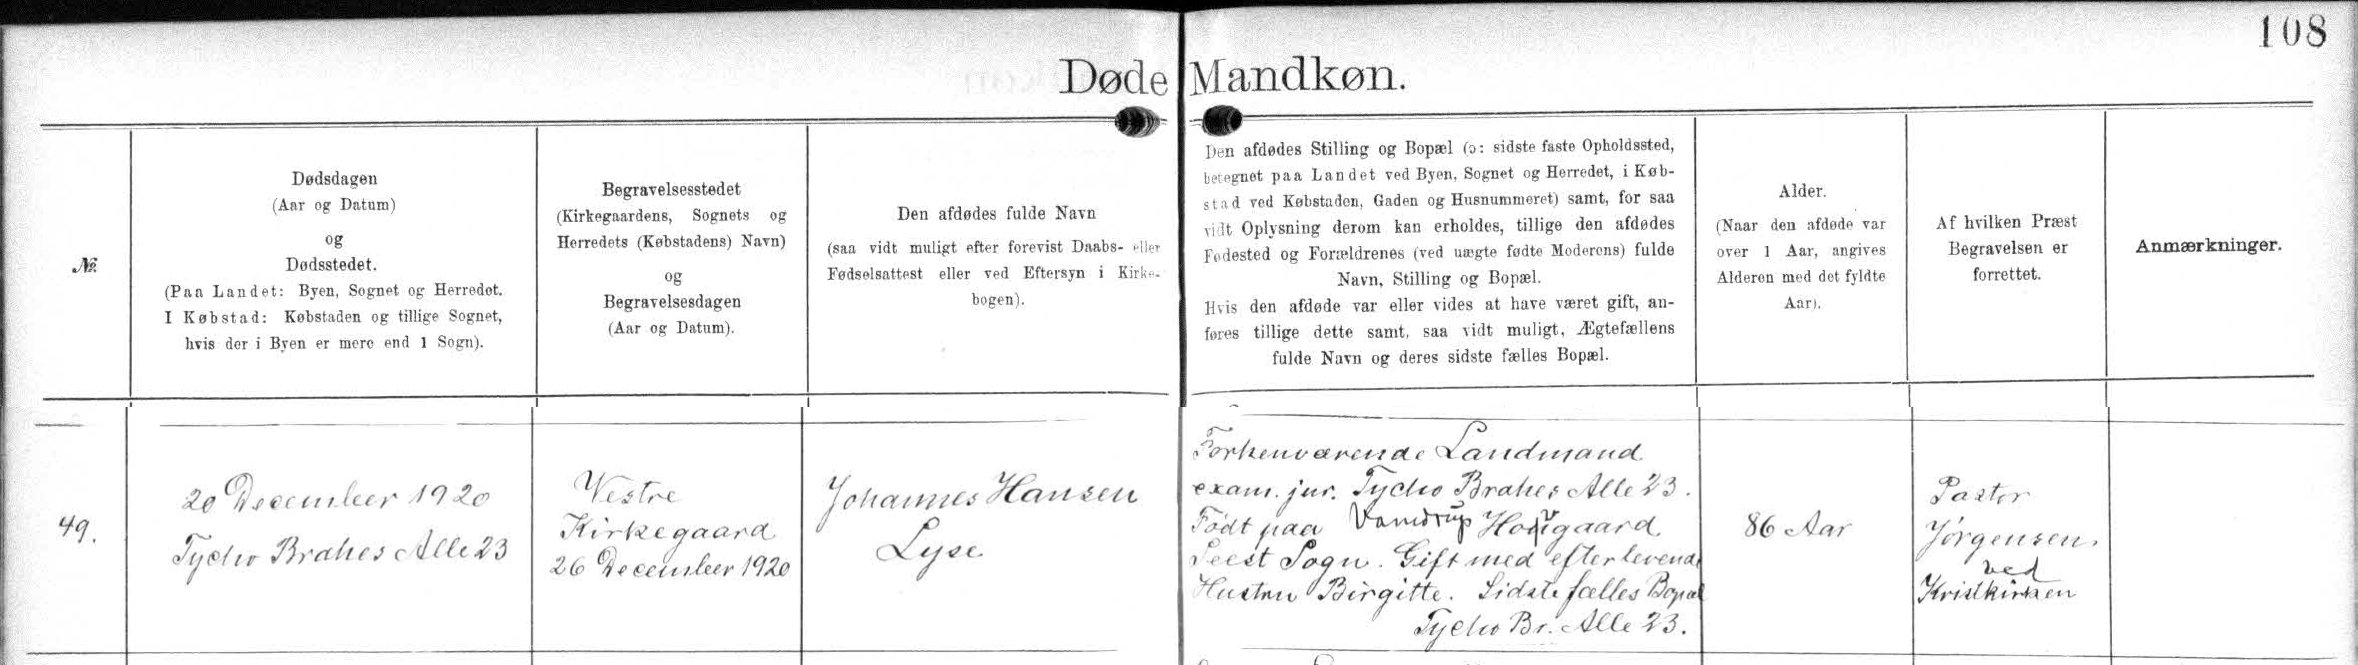 108
Døde Mandkøn.
№
Dødsdagen
(Aar og Datum)
og
Dødsstedet.
(Paa Landet: Byen, Sognet og Herredet.
I Købstad: Købstaden og tillige Sognet,
hvis der i Byen er mere end 1 Sogn).
Begravelsesstedet
(Kirkegaardens, Sognets og
Herredets (Købstadens) Navn)
og
Begravelsesdagen
(Aar og Datum).
Den afdødes fulde Navn
(saa vidt muligt efter forevist Daabs- eller
Fødselsattest eller ved Eftersyn i Kirke-
bogen).
Den afdødes Stilling og Bopæl (ɔ: sidste faste Opholdssted,
betegnet paa Landet ved Byen, Sognet og Herredet, i Køb-
stad ved Købstaden, Gaden og Husnummeret) samt, for saa
vidt Oplysning derom kan erholdes, tillige den afdødes
Fødested og Forældrenes (ved uægte fødte Moderens) fulde
Navn, Stilling og Bopæl.
Hvis den afdøde var eller vides at have været gift, an-
føres tillige dette samt, saa vidt muligt, Ægtefællens
fulde Navn og deres sidste fælles Bopæl.
Alder.
(Naar den afdøde var
over 1 Aar, angives
Alderen med det fyldte
Aar).
Af hvilken Præst
Begravelsen er
forrettet.
Anmærkninger.
49.
20 December 1920
Tycho Brahes Alle 23
Vestre
Kirkegaard
26 December 1920
Johannes Hansen
Lyse
Forhenværende Landmand
exam. jur. Tycho Brahes Alle 23.
Født paa Vamdrup
Seest Sogn. Gift med efterlevende
Hustru Birgitte. Sidste fælles Bopæl
Tycho Br. Alle 23.
86 Aar
Pastor
Jørgensen
ved
Kristkirken